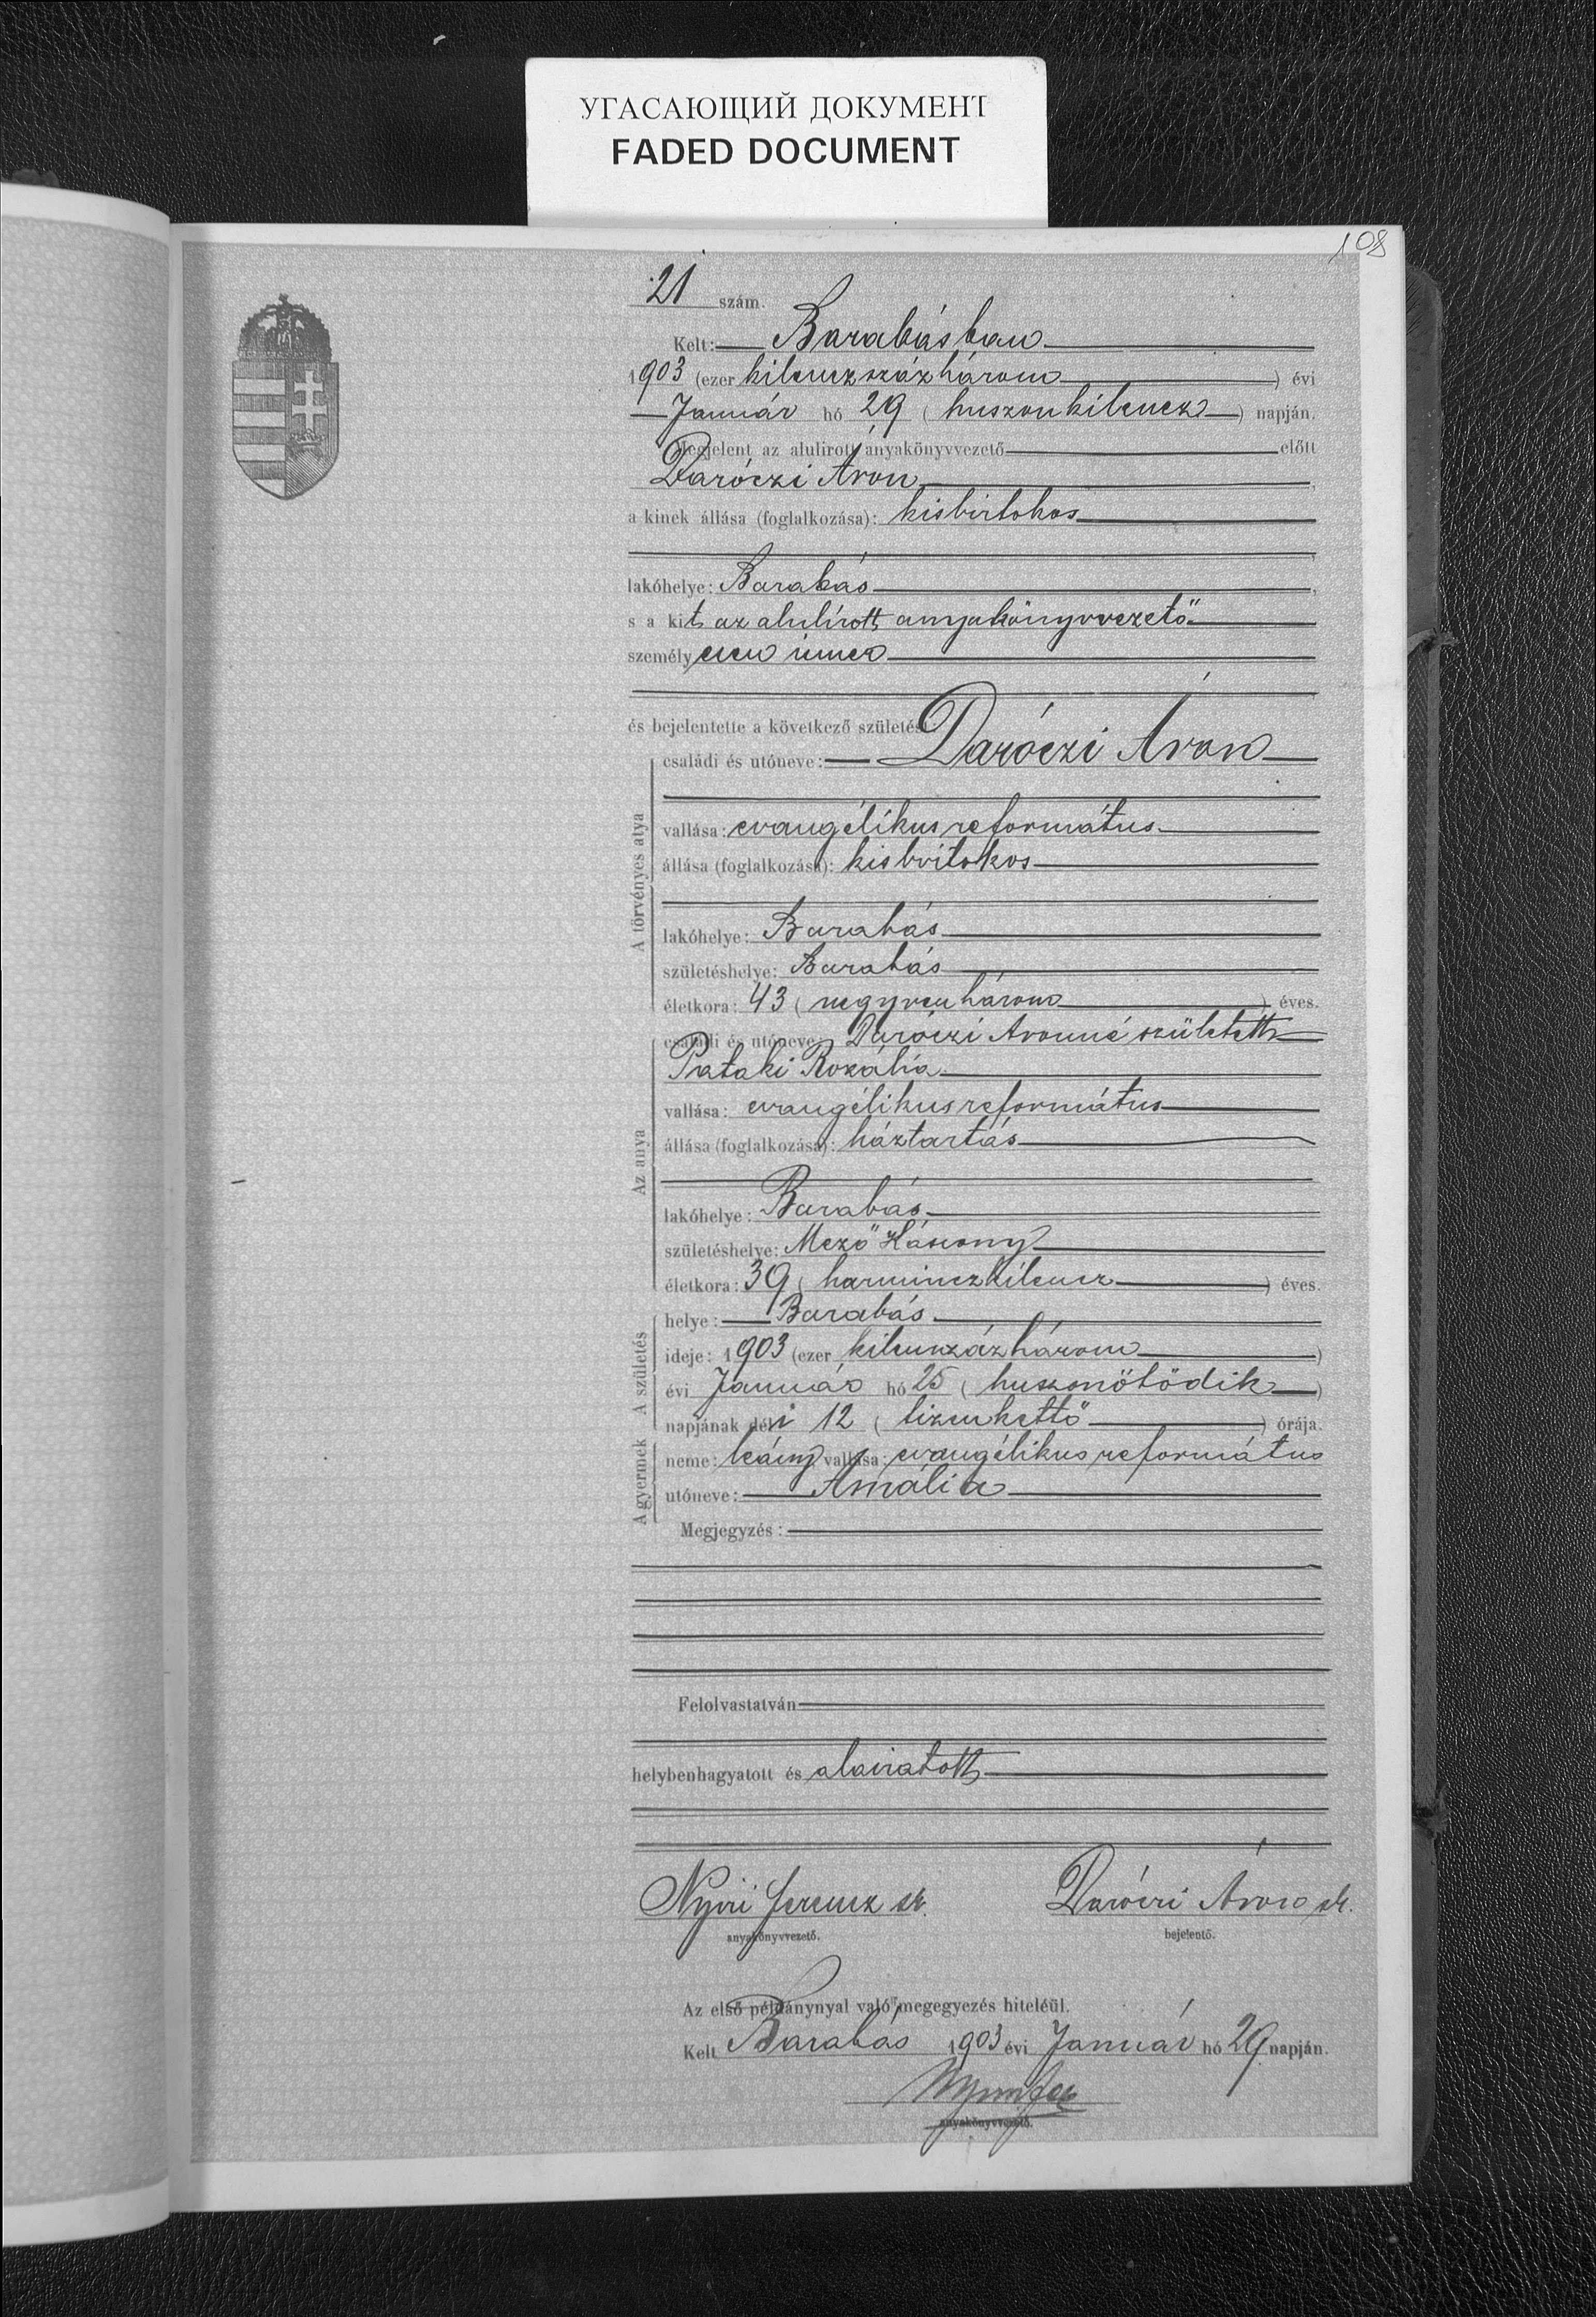 УГАСАЮЩИЙ ДОКУМЕНТ
FADED DOCUMENT
108
21 szám.
Kelt: Barabásban
1903 (ezer kilenczszázhárom) évi
Január hó 29 (huszonkilencz) napján.
Megjelent az alulirott anyakönyvvezető előtt
Daróczi Áron,
a kinek állása (foglalkozása): kisbirtokos
lakóhelye: Barabás,
s a kit az alulírott anyakönyvvezető
személyesen ismer
és bejelentette a következő születést:
családi és utóneve: Daróczi Áron
A törvényes atya
vallása: evangélikus református
állása (foglalkozása): kisbirtokos
lakóhelye: Barabás
születéshelye: Barabás
életkora: 43 (negyvenhárom) éves.
családi és utóneve: Daróczi Áronné született
Pataki Rozália
Az anya
vallása: evangélikus református
állása (foglalkozása): háztartás
lakóhelye: Barabás
születéshelye: Mező Kászony
életkora: 39 (harminczkilencz) éves.
A születés
helye: Barabás
ideje: 1903 (ezer kilenczázhárom)
évi Január hó 25 (huszonötödik)
napjának déli 12 (tizenkettő) órája.
A gyermek
neme: leány vallása: evangélikus református
utóneve: Amália
Megjegyzés:
Felolvastatván
helybenhagyatott és aláiratott
Nyiri Ferencz sk. Daróczi Áron sk.
anyakönyvvezető. bejelentő.
Az első példánynyal való megegyezés hiteléül.
Kelt Barabás 1903 évi Január hó 29 napján.
anyakönyvvezető.